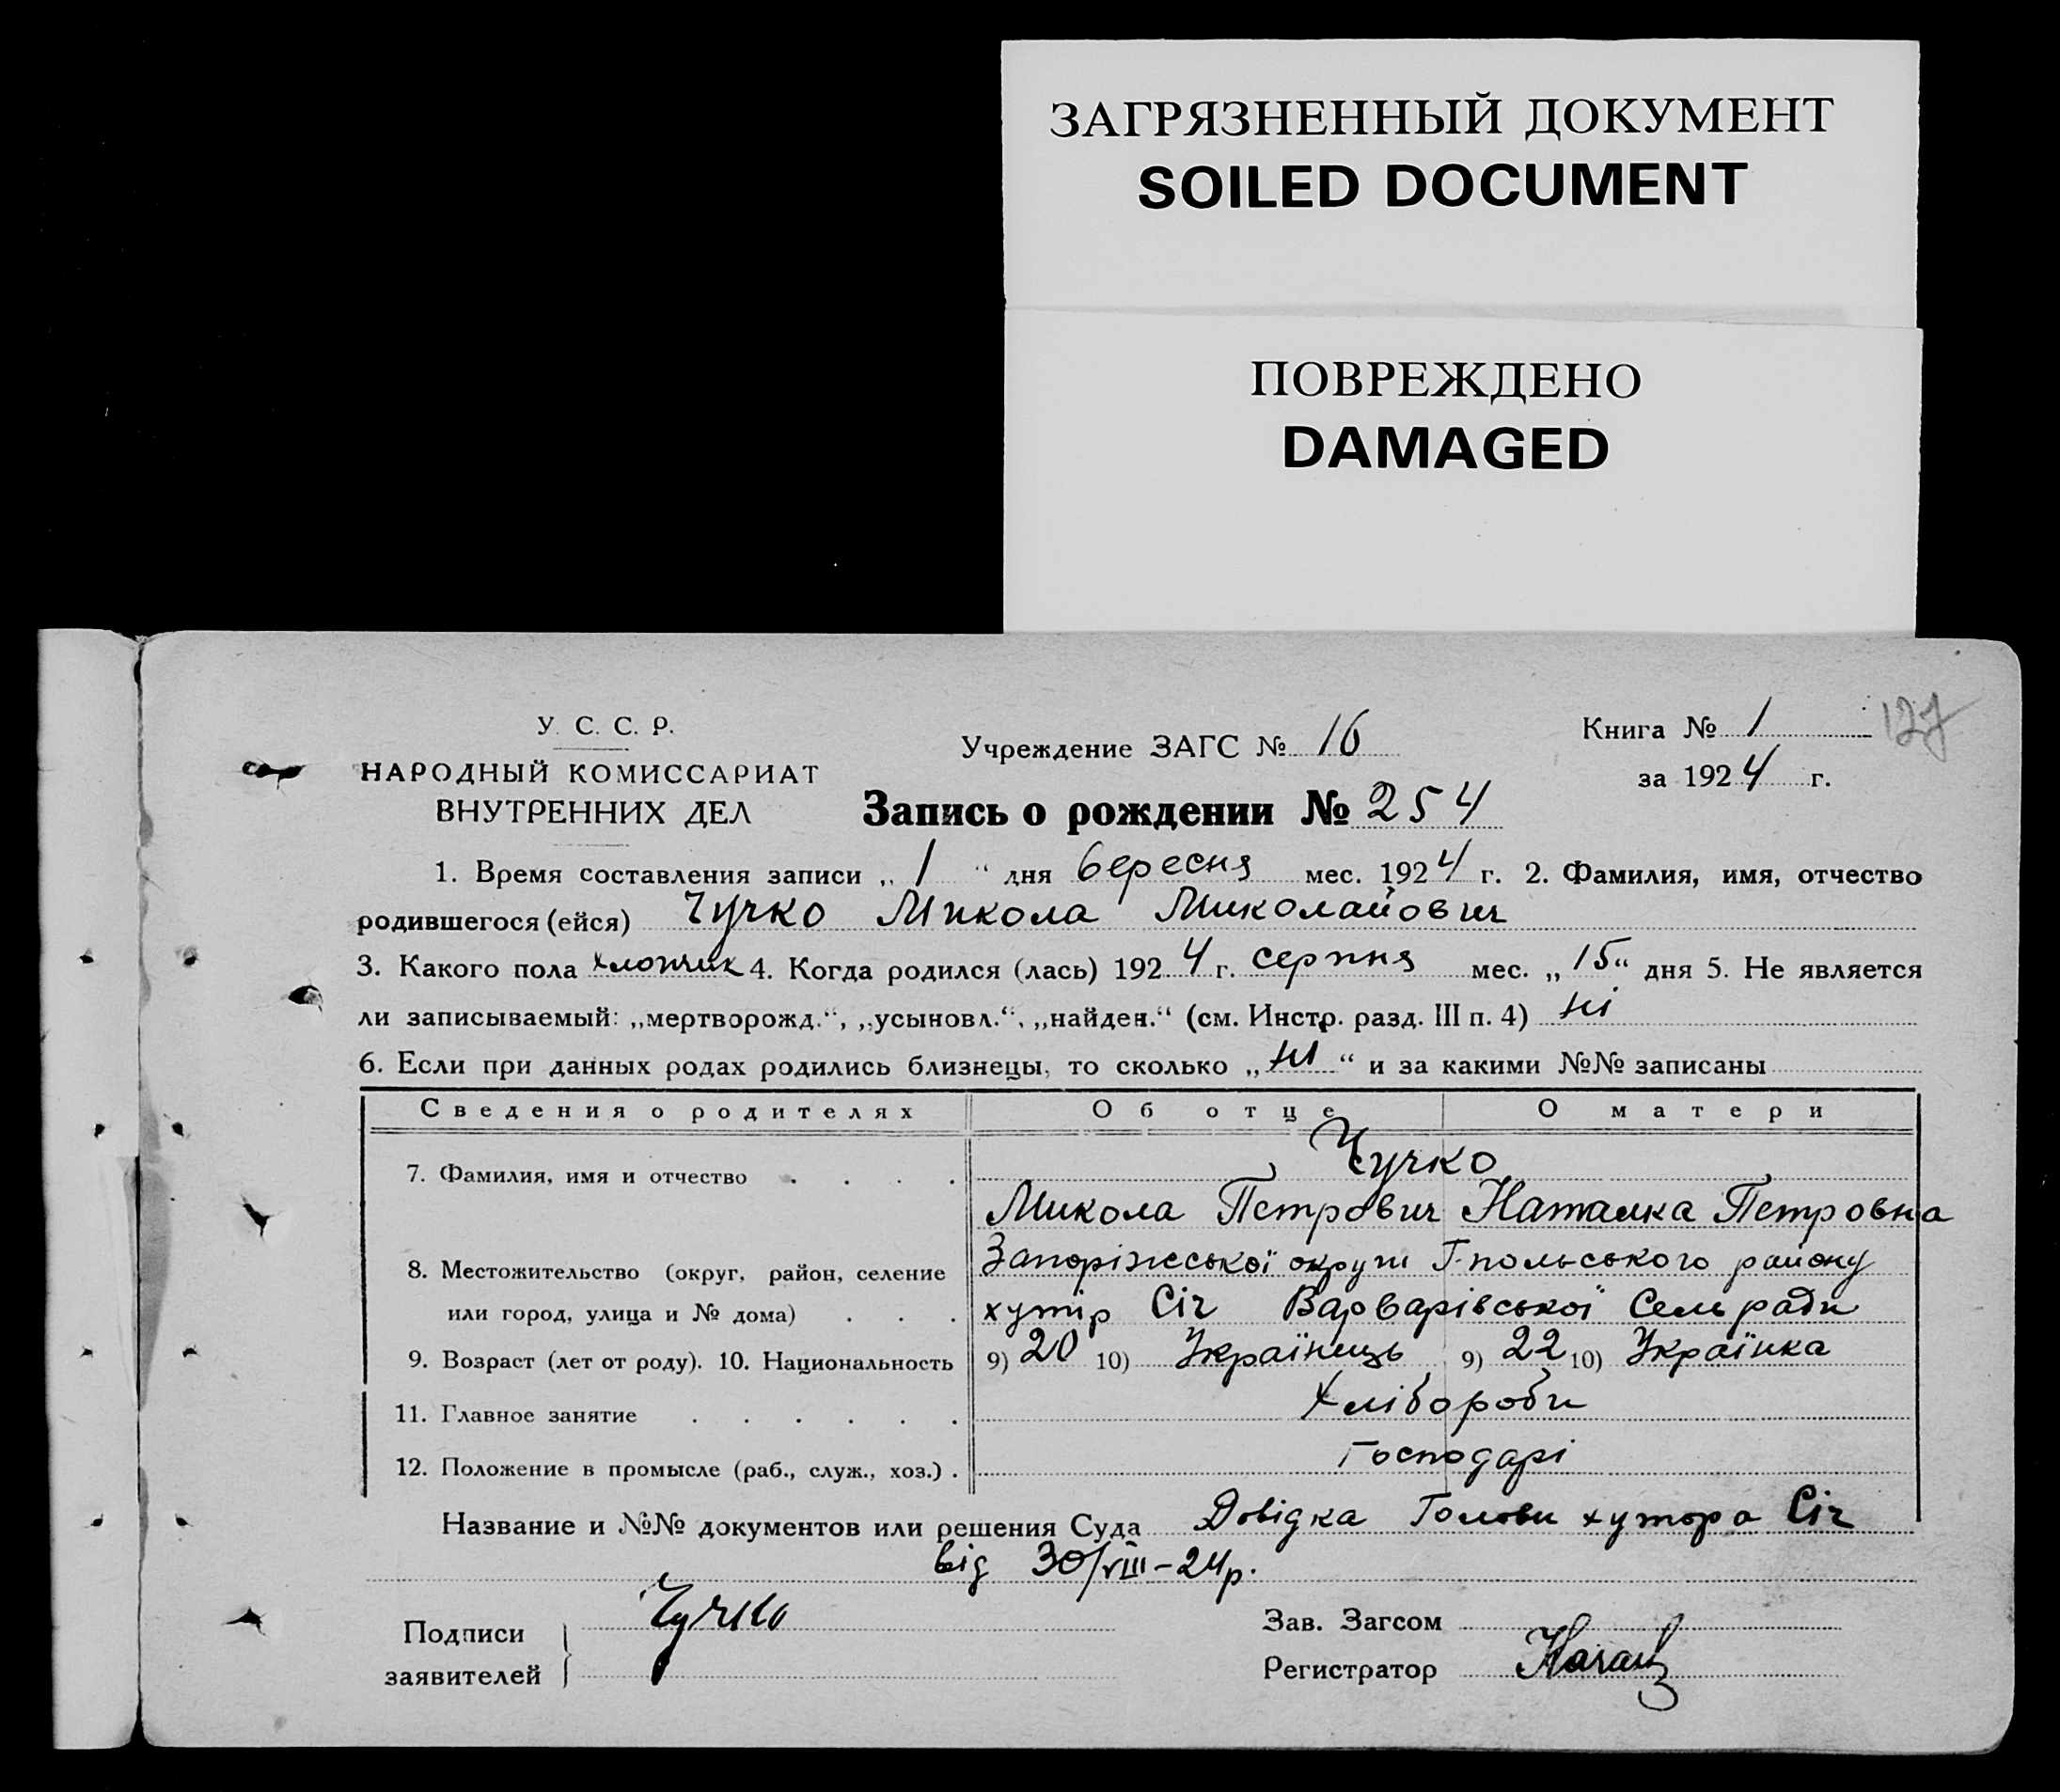 ЗАГРЯЗНЕННЫЙ ДОКУМЕНТ
SOILED DOCUMENT
ПОВРЕЖДЕНО
DAMAGED
У. С. С. Р.
НАРОДНЫЙ КОМИССАРИАТ
ВНУТРЕННИХ ДЕЛ
Учреждение ЗАГС № 16
Книга № 1
127
за 1924 г.
Запись о рождении № 254
1. Время составления записи „1“ дня вересня мес. 1924 г. 2. Фамилия, имя, отчество
родившегося (ейся) Чучко Микола Миколайович
3. Какого пола хлопчик 4. Когда родился (лась) 1924 г. серпня мес. „15“ дня 5. Не является
ли записываемый: „мертворожд.“, „усыновл.“, „найден.“ (см. Инстр. разд. III п. 4) ні
6. Если при данных родах родились близнецы, то сколько „ні“ и за какими №№ записаны
Сведения о родителях Об отце О матери
7. Фамилия, имя и отчество . . . . Чучко
Микола Петрович Наталка Петровна
8. Местожительство (округ, район, селение Запоріжської округи Г-польського району
или город, улица и № дома) . . . хутір Січ Варварівської Сельради
9. Возраст (лет от роду). 10. Национальность 9) 20 10) Українець 9) 22 10) Українка
11. Главное занятие . . . . . . Хлібороби
12. Положение в промысле (раб., служ., хоз.) . Господарі
Название и №№ документов или решения Суда Довідка Голови хутора Січ
від 30/VIII-24р.
Подписи
заявителей
Чучко
Зав. Загсом
Регистратор